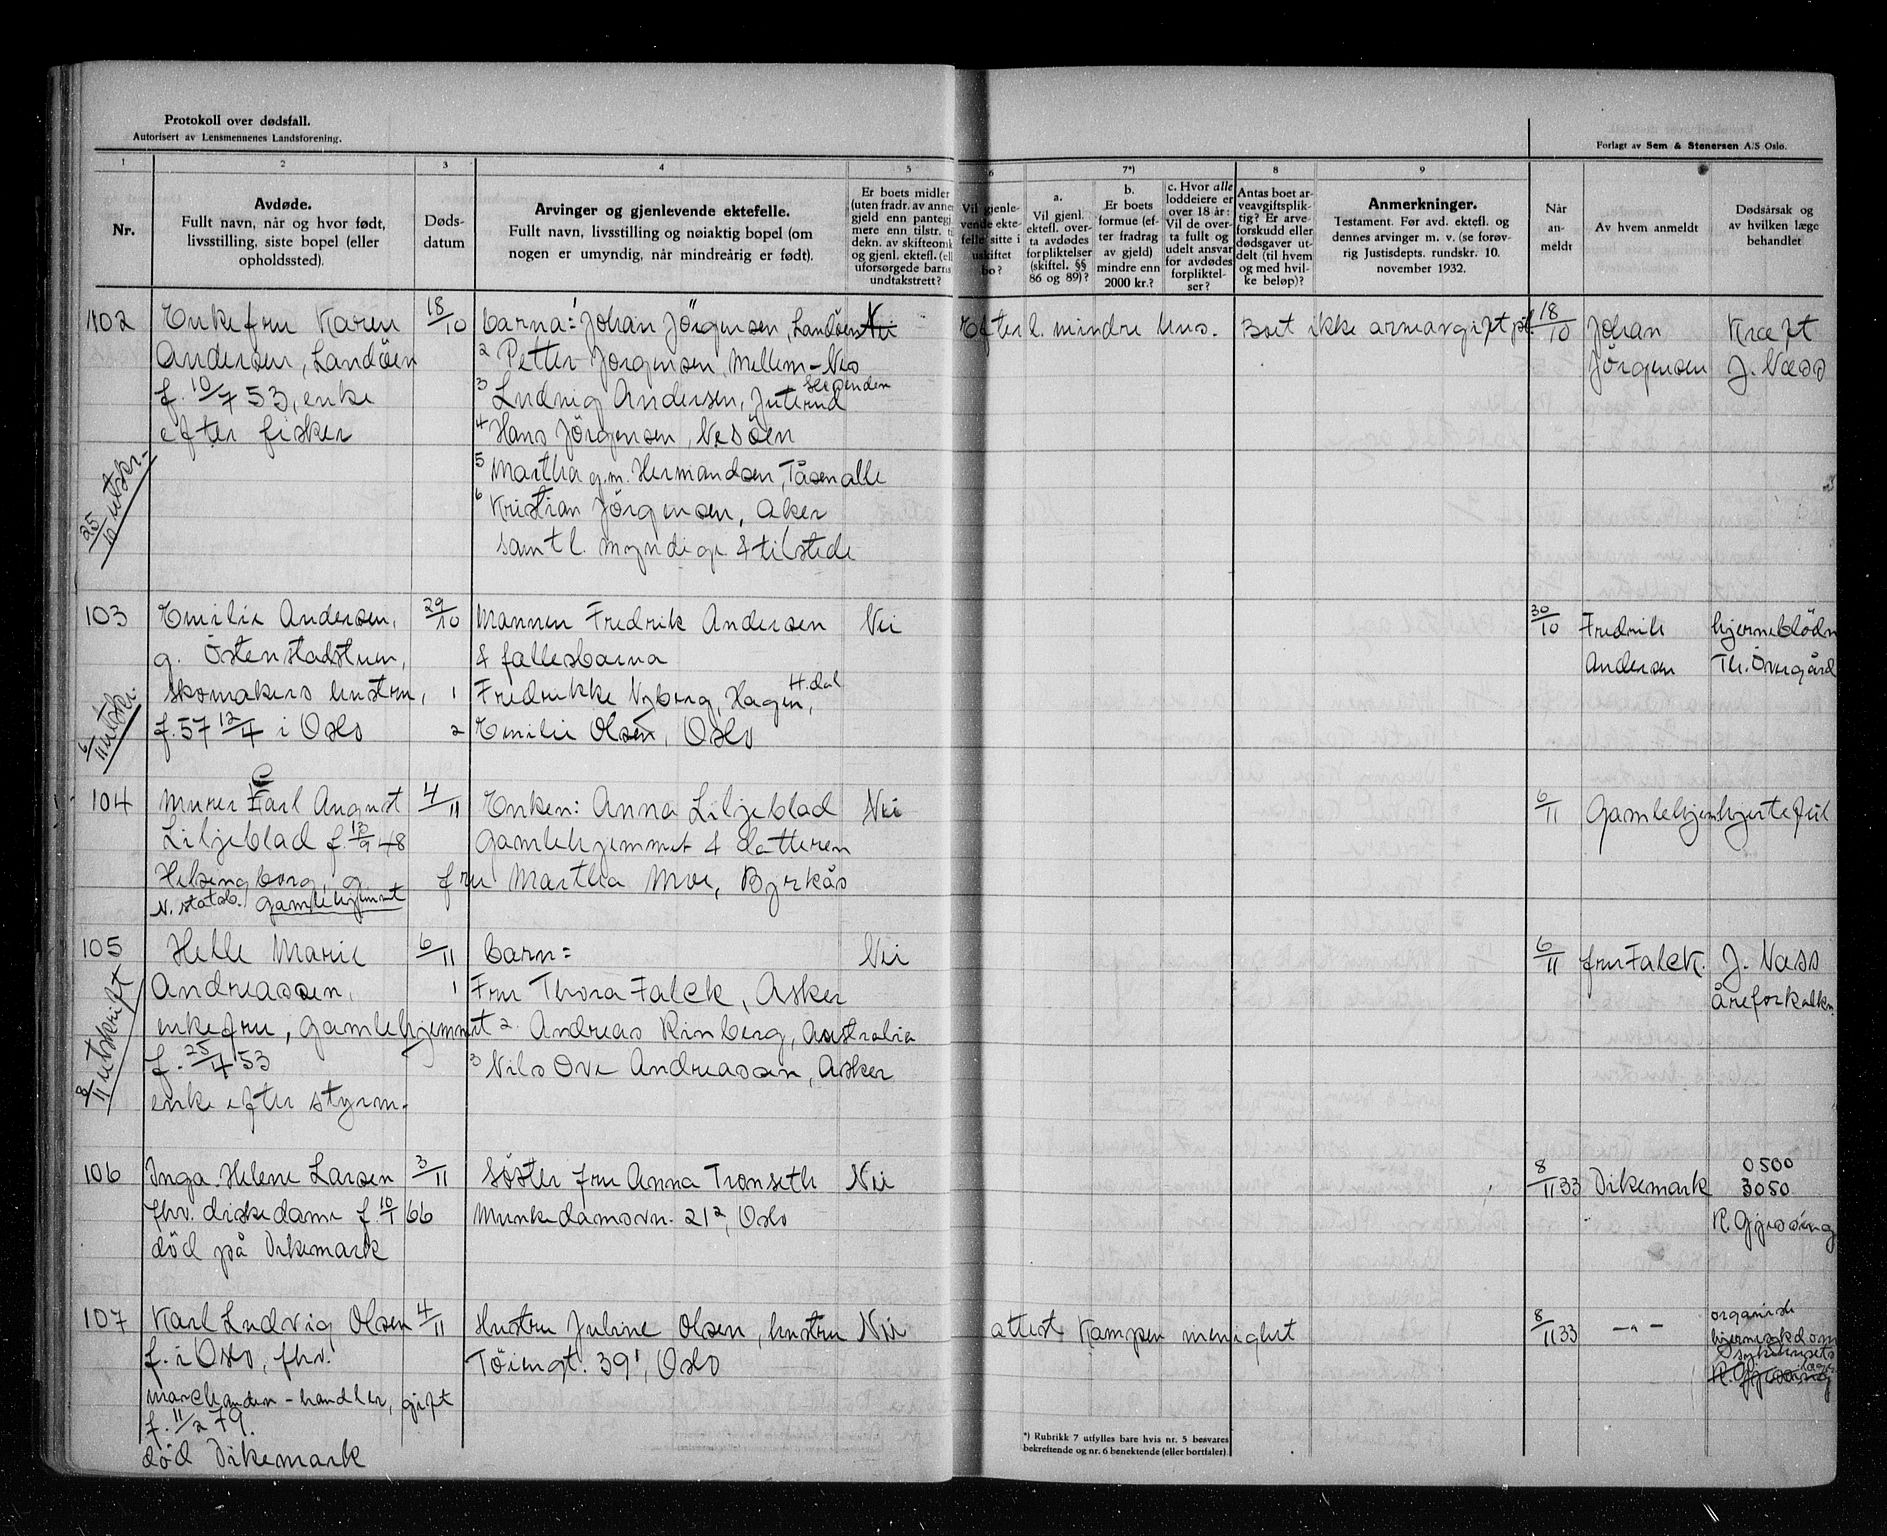 Protokoll over dødsfall.
Autorisert av Lensmennenes Landsforening.
Forlagt av Sem & Stenersen A/S Oslo.
1 2 3 4 5 6 7*) 8 9
Nr.
Avdøde.
Fullt navn, når og hvor født,
livsstilling, siste bopel (eller
opholdssted).
Døds-
datum
Arvinger og gjenlevende ektefelle.
Fullt navn, livsstilling og nøiaktig bopel (om
nogen er umyndig, når mindreårig er født).
Er boets midler
(uten fradr. av annen
gjeld enn pantegj
mere enn tilstr. t
dekn. av skifteomk
og gjenl. ektefl. (el
uforsørgede barns
undtakstrett?
Vil gjenle-
vende ekte-
felle sitte i
uskiftet
bo?
a.
Vil gjenl.
ektefl. over-
ta avdødes
forpliktelser
(skiftel. §§
86 og 89)?
b.
Er boets
formue (ef-
ter fradrag
av gjeld)
mindre enn
2000 kr.?
c. Hvor alle
loddeiere er
over 18 år:
Vil de over-
ta fullt og
udelt ansvar
for avdødes
forpliktel-
ser?
Antas boet ar-
veavgiftsplik-
tig? Er arve-
forskudd eller
dødsgaver ut-
delt (til hvem
og med hvil-
ke beløp)?
Anmerkninger.
Testament. Før avd. ektefl. og
dennes arvinger m. v. (se forøv-
rig Justisdepts. rundskr. 10.
november 1932.
Når
an-
meldt
Av hvem anmeldt
Dødsårsak og
av hvilken læge
behandlet
102
Enkefru Karen
Andersen, Landöen
f. 10/7 53, enke
efter fisker
25/10 utskr.
18/10
barna: 1 Johan Jörgensen, Landöen
2 Petter Jörgensen, Mellem-Nes
3 Ludvig Andersen, Juterud
Slependen
4 Hans Jörgensen, Nesöen
5 Martha g.m. Hermandsen, Tåsenalle
6 Kristian Jörgensen, Aker
samtl. myndige & tilstede
Nei
Efterl. mindre hus.
Boet ikke
18/10
Johan
Jörgensen
Kreft
J. Næss
103
Emilie Andersen,
g. Östenstadstuen,
skomakers hustru,
f. 57 12/4 i Oslo
6/11 utskr.
29/10
Mannen Fredrik Andersen
& fallesbarna
1 Fredrikke Nyborg, Hagen,
H.dal
2 Emilie Olsen, Oslo
Nei
30/10
Fredrik
Andersen
hjerneblödn
Th. Övergård
104
Murer Carl August
Liljeblad f. 13/9 48
Helsingborg, g.
N. statsb. Gamlehjemmet
4/11
Enken: Anna Liljeblad
Gamlehjemmet & datteren
fru Martha Moe, Byrkås
Nei
6/11
Gamlehjem
hjertefeil
105
Helle Marie
Andreassen,
enkefru, Gamlehjemmet
f. 25/4 53
enke efter styrm.
8/11 utskrift
6/11
barn:
1 Fru Thora Falck, Asker
2 Andreas Rinberg, Australia
3 Nils Ove Andreassen, Asker
Nei
6/11
fru Falck.
J. Næss
åreforkalkn.
106
Inga Helene Larsen
fhv. diskedame f. 10/1 66
död på Dikemark
3/11
Söster fru Anna Tronseth
Munkedamsvn. 21², Oslo
Nei
8/11 33
Dikemark
0500
3050
R. Gjessing
107
Karl Ludvig Olsen
f. i Oslo, fhv.
marchanden-handler, gift
f. 11/2 79.
död Dikemark
4/11
Hustru Juline Olsen, hustru
Töiengt. 39¹, Oslo
Nei
attest Kampen menighet
8/11 33
— " —
organisk
hjernesykdom
sykehusets
læge
R. Gjessing
*) Rubrikk 7 utfylles bare hvis nr. 5 besvares
bekreftende og nr. 6 benektende (eller bortfaller).